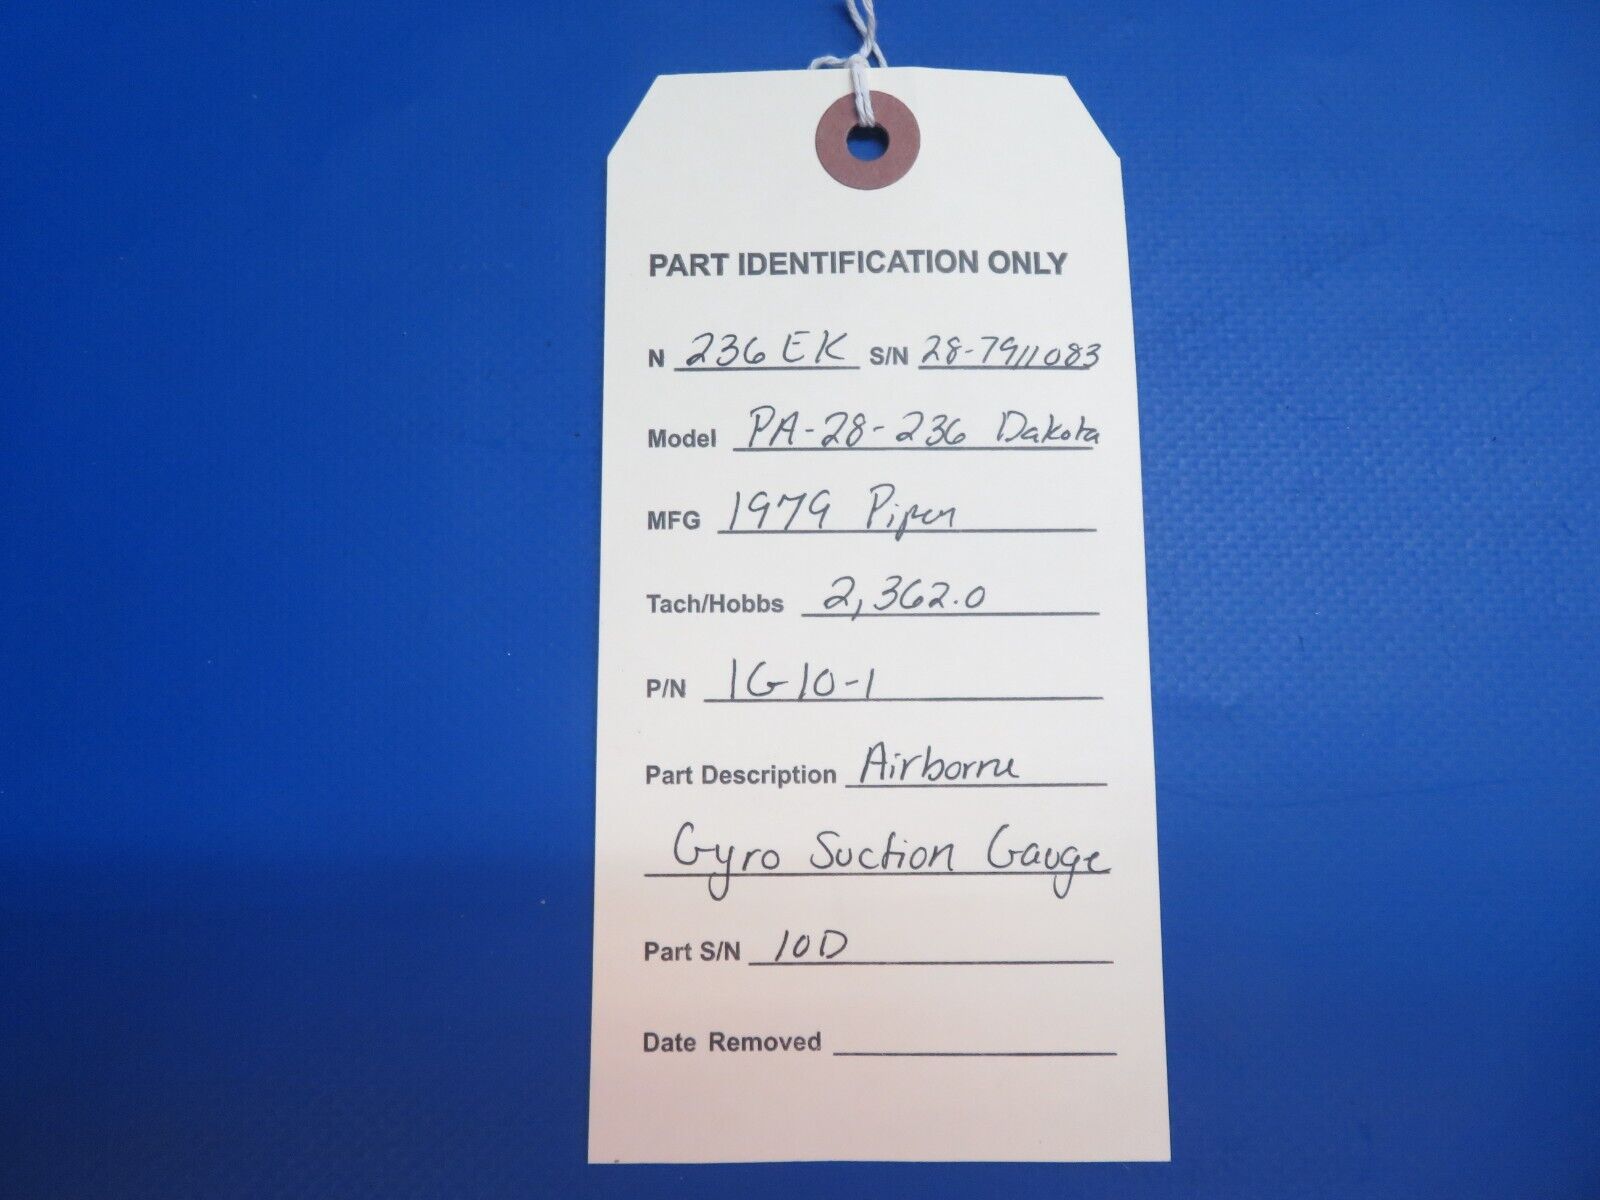 PART IDENTIFICATION ONLY
N 236 EK S/N 28-7911083
Model PA-28-236 Dakota
MFG 1979 Piper
Tach/Hobbs 2,362.0
P/N 1G10-1
Part Description Airborne
Gyro Suction Gauge
Part S/N 10D
Date Removed